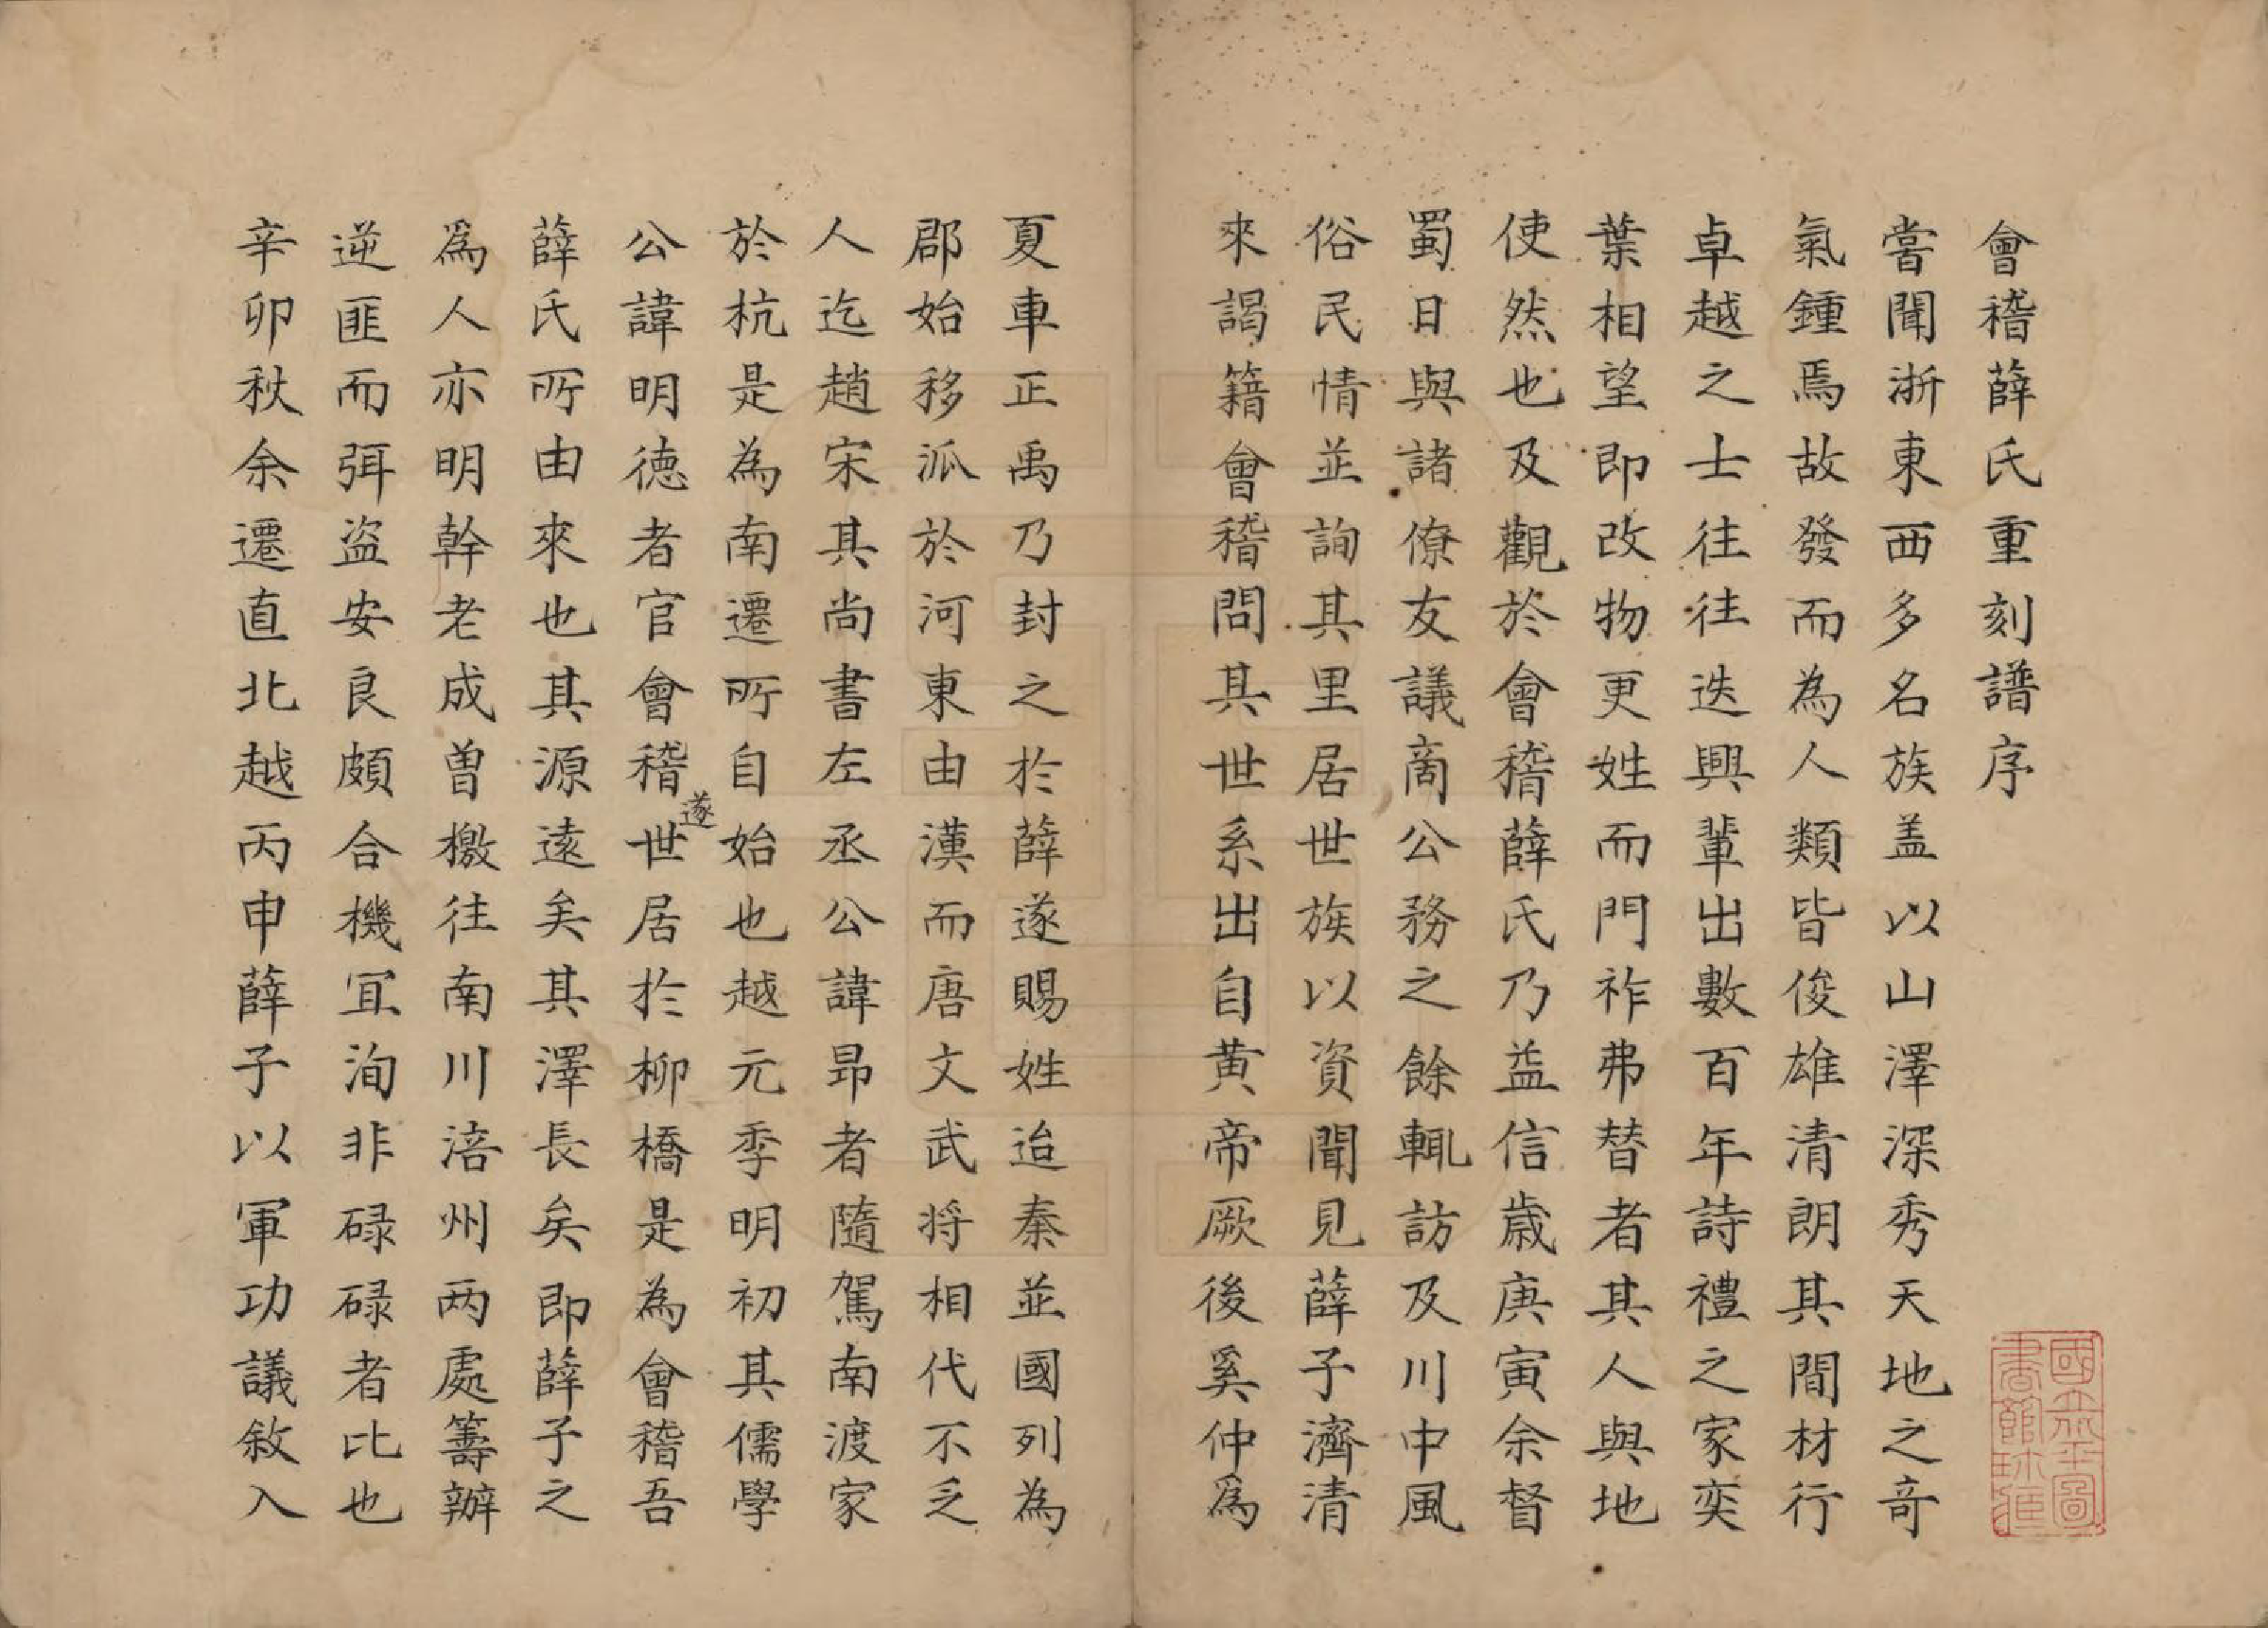 會稽薛氏重刻譜序
嘗聞浙東西多名族盖以山澤深秀天地之奇
氣鍾焉故發而為人類皆俊雄清朗其間材行
卓越之士徃徃迭興軰出數百年詩禮之家奕
葉相望即改物更姓而門祚弗替者其人與地
使然也及觀於會稽薛氏乃益信歲庚寅余督
蜀日與諸僚友議啇公務之餘輒訪及川中風
俗民情並詢其里居世族以資聞見薛子濟清
來謁籍會稽問其世系出自黄帝厥後奚仲爲
夏車正禹乃封之於薛遂賜姓迨秦並國列為
郡始移派於河東由漢而唐文武将相代不乏
人迄趙宋其尚書左丞公諱昂者隨駕南渡家
於杭是為南遷所自始也越元季明初其儒學
公諱明德者官會稽遂世居於柳橋是為會稽吾
薛氏所由來也其源遠矣其澤長矣即薛子之
爲人亦明幹老成曽檄往南川涪州两處籌辦
逆匪而弭盗安良頗合機冝洵非碌碌者比也
辛卯秋余遷直北越丙申薛子以軍功議敘入
國立北平圖
書館珎藏